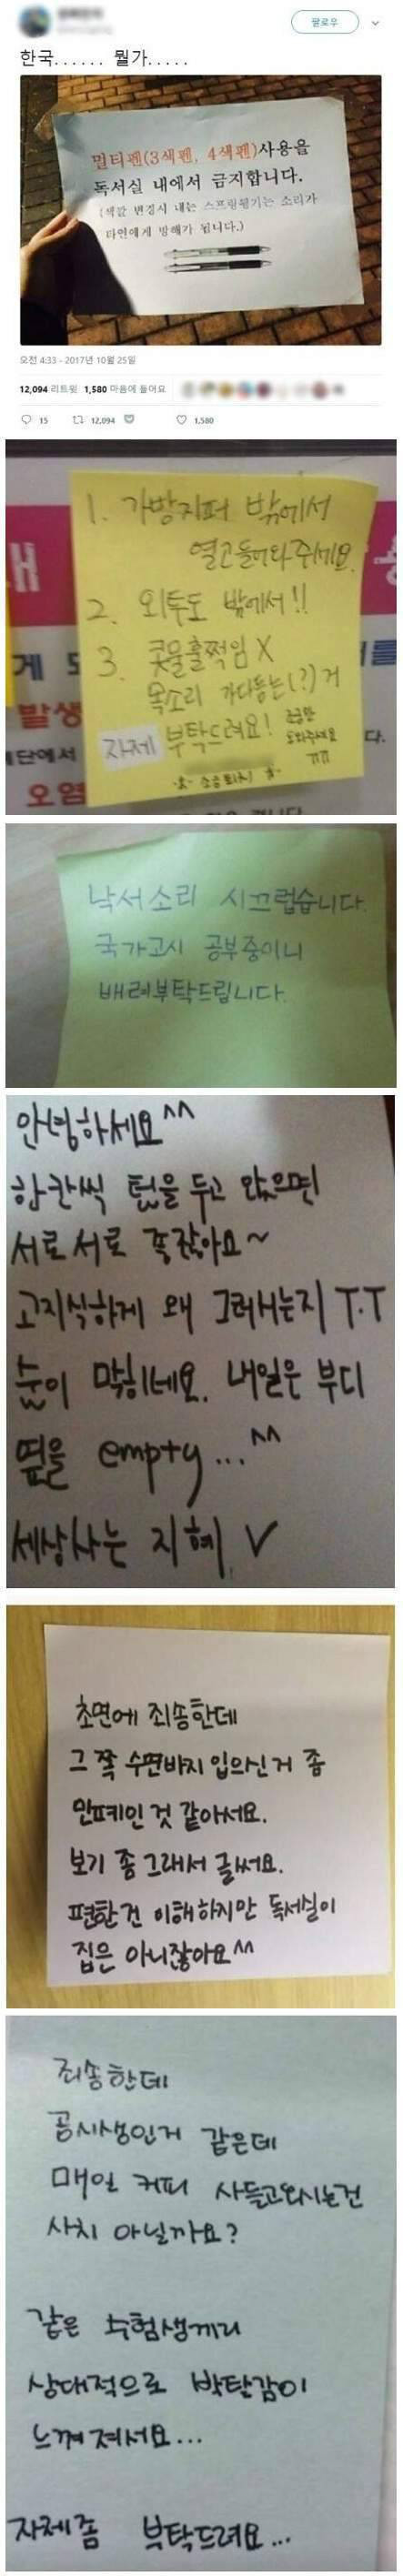 팔로우
한국...... 뭘가.....
멀티펜(3색펜, 4색펜)사용을
독서실 내에서 금지합니다.
(색깔 변경시 내는 스프링튕기는 소리가
타인에게 방해가 됩니다.)
오전 4:33 - 2017년 10월 25일
12,094 리트윗 1,580 마음에 들어요
15 12,094 1,580
1. 가방지퍼 밖에서
열고들어와주세요.
2. 외투도 밖에서!!
3. 콧물훌쩍임 X
목소리 가다듬는(?)거
자제 부탁드려요!
조금만
도와주세요
ㅠㅠ
게
발생
단에서
오염
를
다.
낙서소리 시끄럽습니다.
국가고시 공부중이니
배려부탁드립니다.
안녕하세요^^
한칸씩 텀을 두고 앉으면
서로서로 좋잖아요~
고지식하게 왜 그러시는지 T.T
숨이 막히네요. 내일은 부디
옆을 empty...^^
세상사는 지혜 V
초면에 죄송한데
그 쪽 수면바지 입으신거 좀
민폐인 것 같아서요.
보기 좀 그래서 글써요.
편한건 이해하지만 독서실이
집은 아니잖아요^^
죄송한데
공시생인거 같은데
매일 커피 사들고오시는건
사치 아닐까요?
같은 수험생끼리
상대적으로 박탈감이
느껴져서요...
자제좀 부탁드려요...